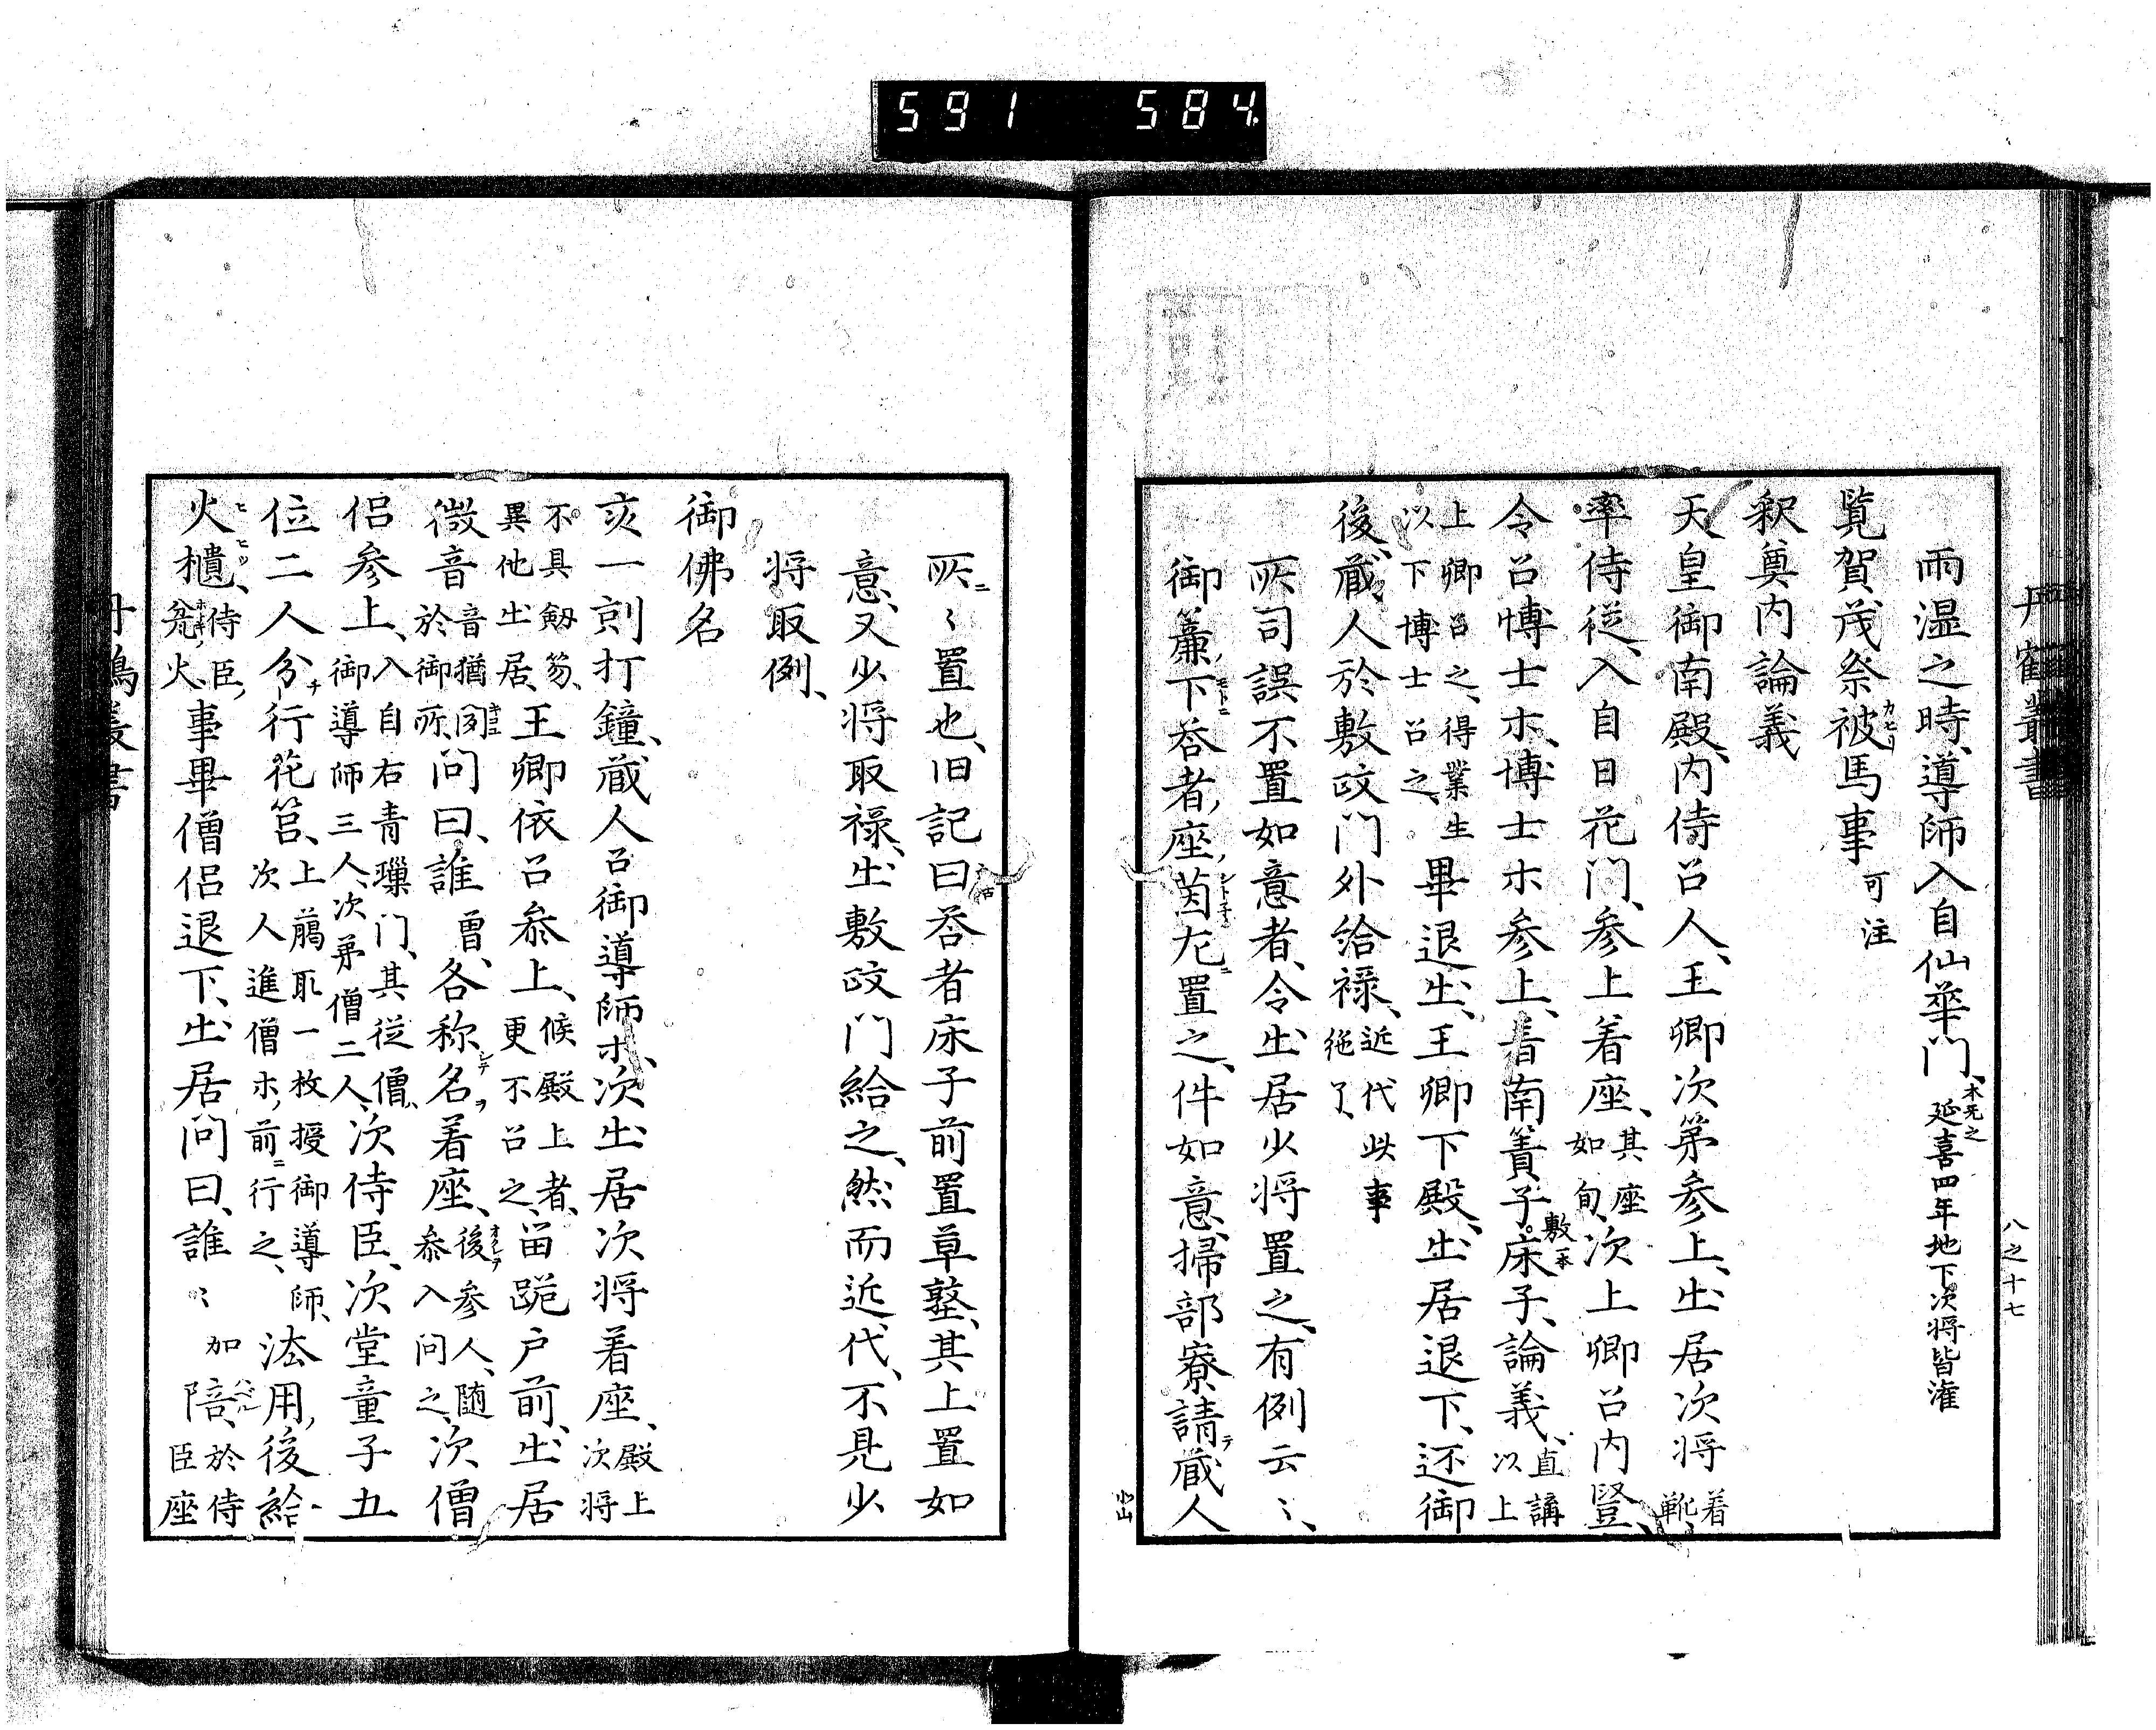 591 584
丹鶴叢書
八之十七
雨湿之時、導師入自仙華門、本无之延喜四年地下次将皆潅
覧賀茂祭被カヒリ馬事可注
釈奠内論義
天皇御南殿、内侍召人、王卿次第参上、出居次将着靴、
率侍従、入自日花門、参上着座、其座如旬、次上卿召内豎、
令召博士ホ、博士ホ参上、着南簀子敷一本床子、論義、直講以上
上卿召之、得業生以下博士召之、畢退出、王卿下殿、出居退下、还御
後、蔵人於敷政门外给禄、近代此事絶了、
所司誤不置如意者、令出居少将置之、有例云〻、
御簾下モトニ荅者座茵シトネ尤ニ置之、件如意、掃部寮請テ蔵人
所ニ〻置也、旧記曰、荅者床子前置草墪、其上置如
意、又少将取禄、出敷政门給之、然而近代、不見少
将取例、
御佛名
亥一刻打鐘、蔵人召御導師ホ、次出居次将着座、殿上次将
不具劔笏、異他出居、王卿依召参上、候殿上者、更不召之、留跪户前、出居
微音音猶囪キコユ於御所、问曰、誰曽、各称シテ名ヲ着座、後オクレテ参人、随参入问之、次僧
侣参上、入自右青璅门、其従僧、御導師三人、次弟僧二人、次侍臣、次堂童子五
位二人分チ行花筥、上﨟取一枚授御導師、次人進僧ホ前ニ行之、法用後給
火櫃ヒヒツ、侍臣㼜ホトキ火、事畢僧侣退下、出居问曰、誰〻加陪ハベル、於侍臣座
丹鶴叢書